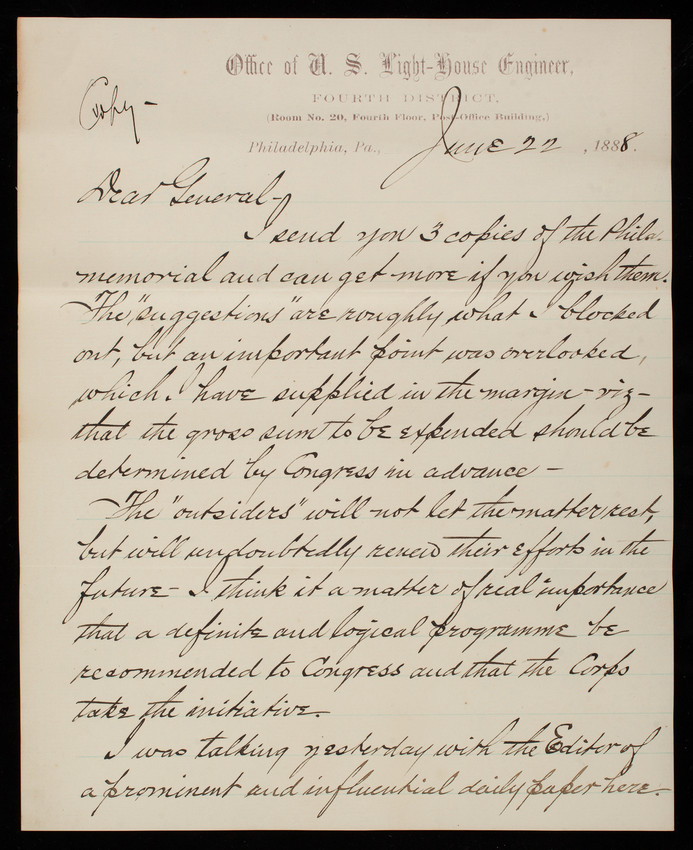 Office of U. S. Light-House Engineer,
FOURTH DISTRICT,
(Room No. 20, Fourth Floor, Post-Office Building,)
Copy -
Philadelphia, Pa., June 22, 1888.
Dear General -
I send you 3 copies of the Phila.
memorial and can get more if you wish them.
The "suggestions" are roughly what I blocked
out, but an important point was overlooked,
which I have supplied in the margin - viz -
that the gross sum to be expended should be
determined by Congress in advance -
The "outsiders" will not let the matter rest,
but will undoubtedly renew their efforts in the
future - I think it a matter of real importance
that a definite and logical programme be
recommended to Congress and that the Corps
take the initiative.
I was talking yesterday with the Editor of
a prominent and influential daily paper here.